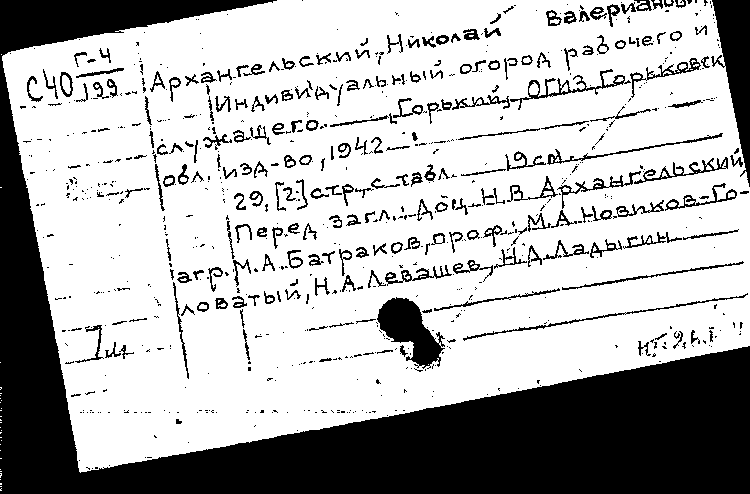 Г-4
С40 199
Архангельский, Николай Валерианович
Индивидуальный огород рабочего и
служащего. Горький, ОГИЗ, Горьковск.
обл. изд-во, 1942.
29, [2] стр. с табл. 19 см.
Перед загл.: Доц. Н.В. Архангельский,
агр. М.А. Батраков, проф. М.А. Новиков-Го-
ловатый, Н.А. Левашев, Н.Д. Ладыгин